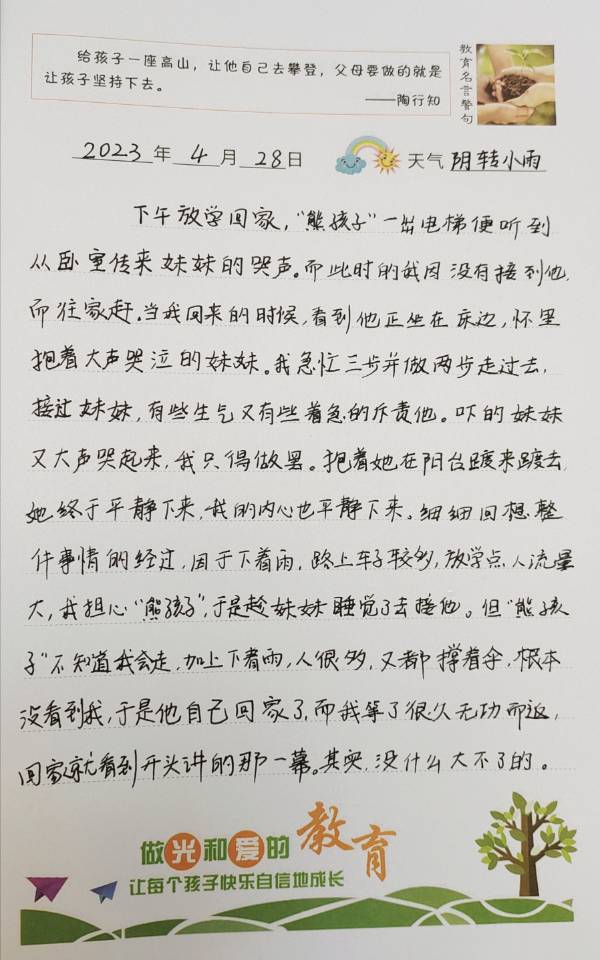 给孩子一座高山，让他自己去攀登，父母要做的就是
让孩子坚持下去。
——陶行知
教育名言警句
2023年4月28日 天气 阴转小雨
下午放学回家，“熊孩子”一出电梯便听到
从卧室传来妹妹的哭声。而此时的我因没有接到他，
而往家赶。当我回来的时候，看到他正坐在床边，怀里
抱着大声哭泣的妹妹。我急忙三步并做两步走过去，
接过妹妹，有些生气又有些着急的斥责他。吓的妹妹
又大声哭起来，我只得做罢。抱着她在阳台踱来踱去，
她终于平静下来，我的内心也平静下来。细细回想整
件事情的经过，因于下着雨，路上车子较多，放学点人流量
大，我担心“熊孩子”，于是趁妹妹睡觉了去接他。但“熊孩
子”不知道我会走，加上下着雨，人很多，又都撑着伞，根本
没看到我，于是他自己回家了，而我等了很久无功而返，
回家就看到开头讲的那一幕。其实，没什么大不了的。
做光和爱的教育
让每个孩子快乐自信地成长